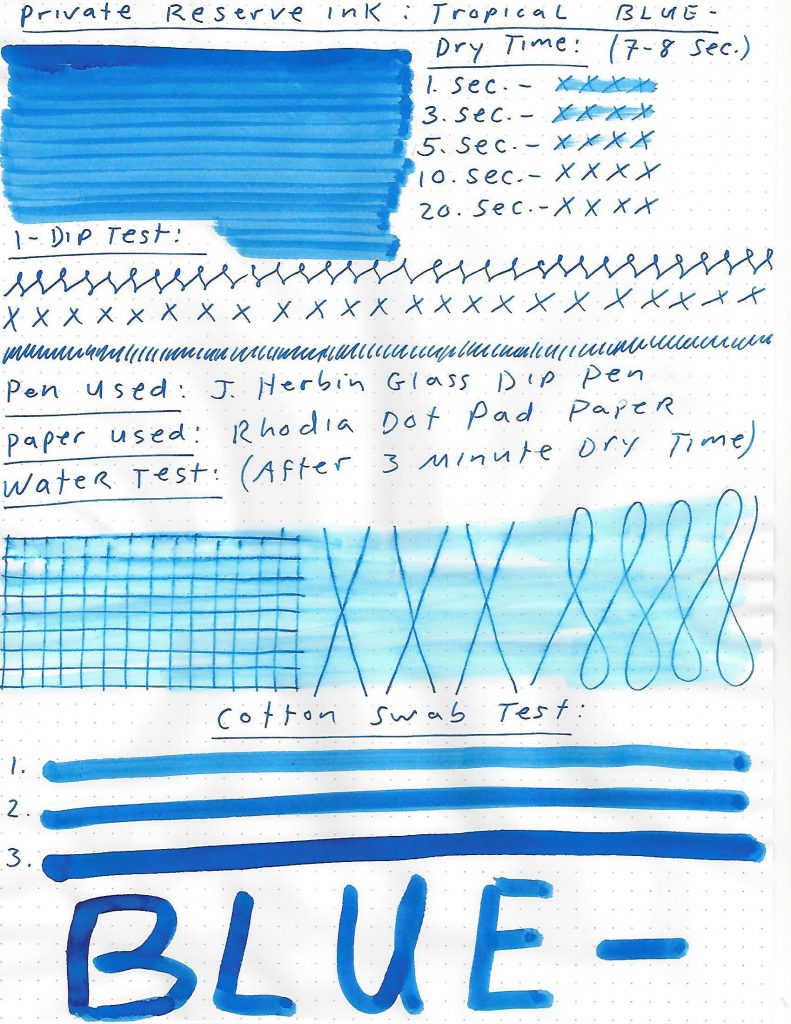 Private Reserve Ink: Tropical BLUE-
Dry Time: (7-8 Sec.)
1. Sec.- X X X X
3. Sec.- X X X X
5. Sec.- X X X X
10. Sec.- X X X X
20. Sec.- X X X X
1- Dip Test:
X X X X X X X X X X X X X X X X X X X X X X X X
Pen Used: J. Herbin Glass Dip Pen
Paper Used: Rhodia Dot Pad Paper
Water Test: (After 3 Minute Dry Time)
Cotton Swab Test:
1.
2.
3.
BLUE-